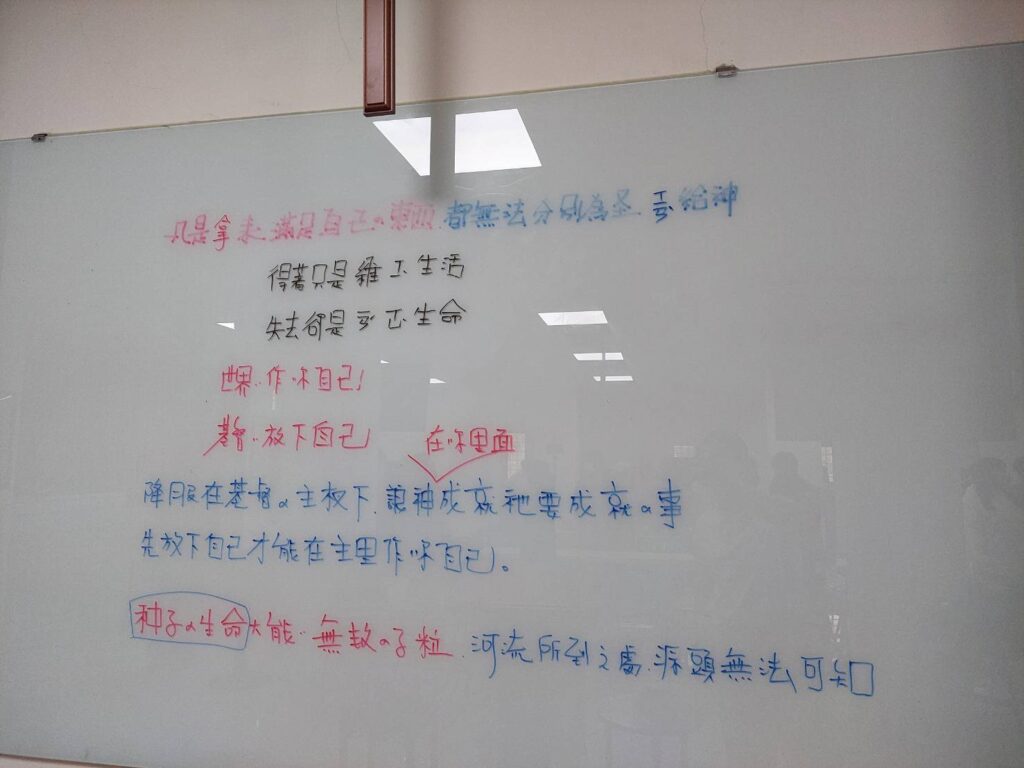 凡是拿來滿足自己α東西.都無法分別為圣 給神
得著只是維工生活
失去卻是 生命
世界..作你自己!
基督.放下自己!
在你里面
降服在基督α主权下.讓神成就祂要成就α事
先放下自己才能在主里作你自己。
种子α生命大能..無数α子粒.河流所到之處.源頭無法可知